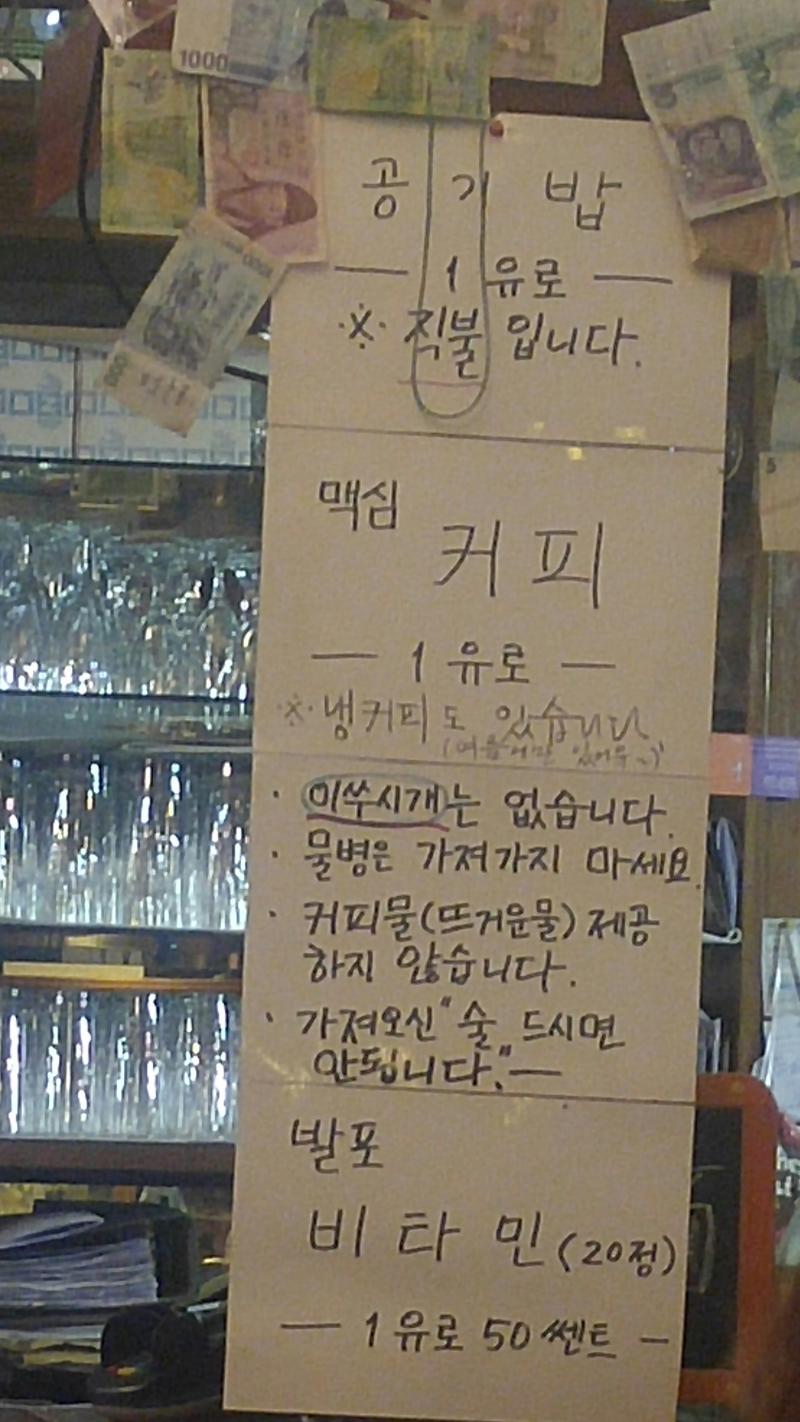 1000
공기밥
— 1 유로 —
※ 직불 입니다.
맥심
커피
— 1 유로 —
※ 냉커피도 있습니다
(여름에만 있어유~)
· 이쑤시개는 없습니다.
· 물병은 가져가지 마세요.
· 커피물(뜨거운물) 제공
하지 않습니다.
· 가져오신 "술 드시면
안됩니다."—
발포
비타민 (20정)
— 1 유로 50 쎈트 —
5